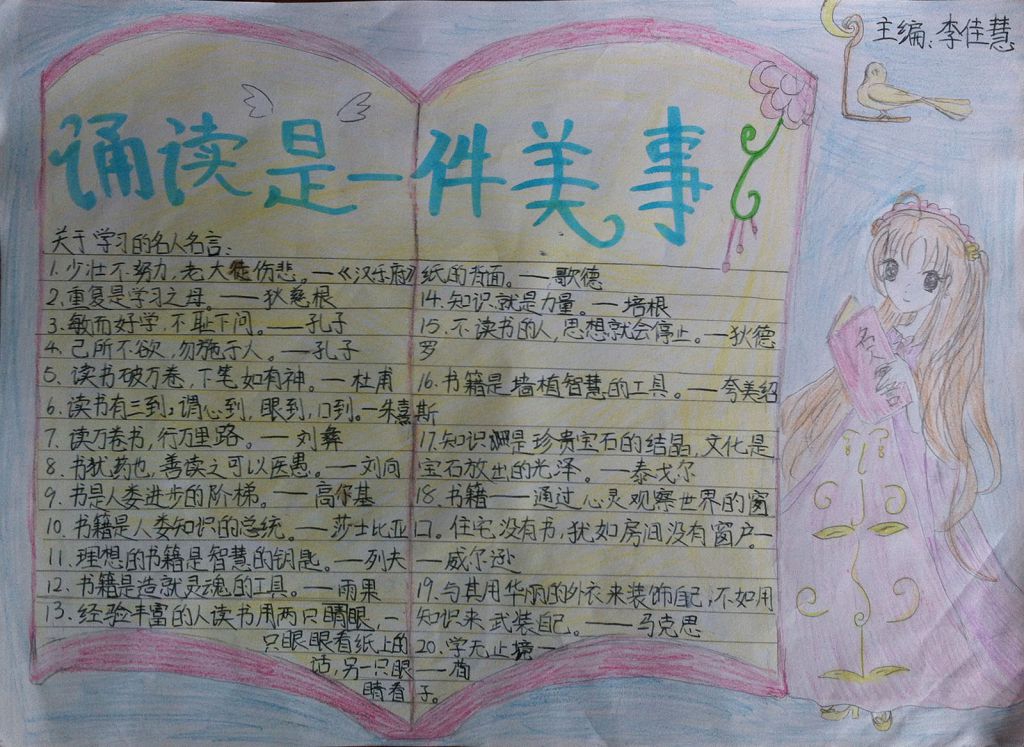 主编:李佳慧
诵读是一件美事
关于学习的名人名言:
1.少壮不努力,老大徒伤悲。—《汉乐府》
2.重复是学习之母。——狄慈根
3.敏而好学,不耻下问。——孔子
4.己所不欲,勿施于人。——孔子
5.读书破万卷,下笔如有神。—杜甫
6.读书有三到:谓心到,眼到,口到。—朱熹
7.读万卷书,行万里路。——刘彝
8.书犹药也,善读之可以医愚。—刘向
9.书是人类进步的阶梯。——高尔基
10.书籍是人类知识的总统。——莎士比亚
11.理想的书籍是智慧的钥匙。—列夫
12.书籍是造就灵魂的工具。——雨果
13.经验丰富的人读书用两只睛眼,一
只眼眼看纸上的
话,另一只眼
睛看
纸的背面。——歌德
14.知识就是力量。—培根
15.不读书的人,思想就会停止。—狄德
罗
16.书籍是墙植智慧的工具。—夸美绍
斯
17.知识是珍贵宝石的结晶,文化是
宝石放出的光泽。——泰戈尔
18.书籍——通过心灵观察世界的窗
口。住宅没有书,犹如房间没有窗户。—
—威尔逊
19.与其用华丽的外衣来装饰自己,不如用
知识来武装自己。——马克思
20.学无止境—
——荀
子。
名人名言